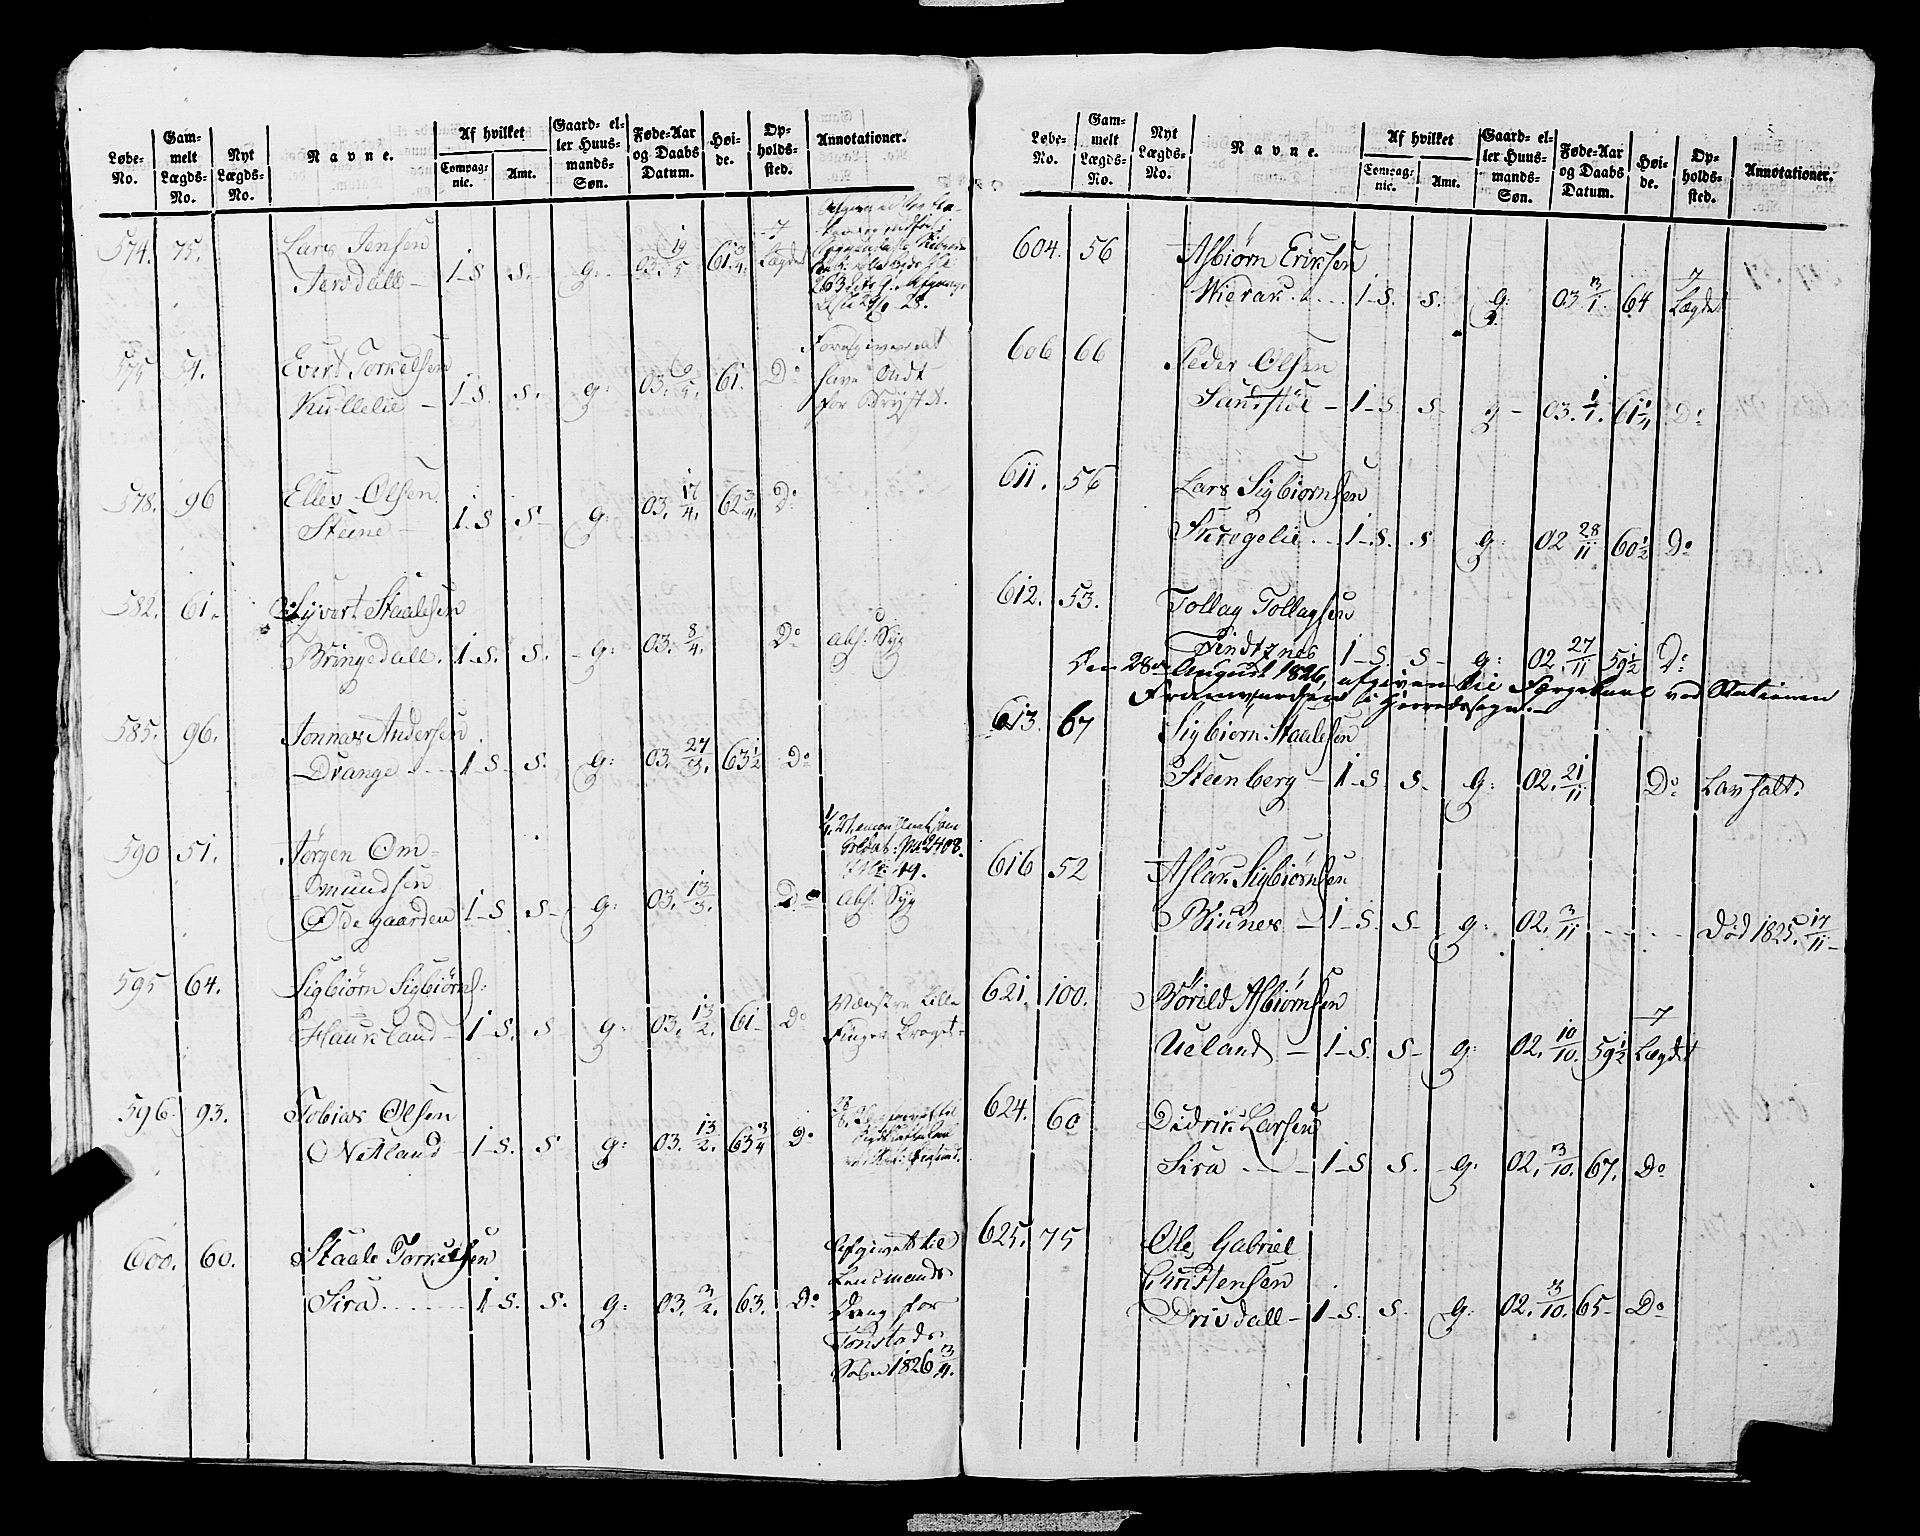 Løbe-No. Gammelt Lægds-No. Nyt Lægds-No. Navne. Af hvilket Compagnie. Amt. Gaard- eller Huusmands-Søn. Føde-Aar og Daabs Datum. Høide. Opholdssted. Annotationer.
574. 75. Lars Jensen
Jersdall – 1 - S S. g. 03. 19/5 61 3/4. i Lægdet
575 54. Evert Torkelsen Foregiver at
Kullelie – 1 - S. S. g. 03. 6/5. 61. Do have Ondt
for Brystet.
578. 96 Ellev Olsen
Steene – 1 - S S – g. 03. 17/4. 62 3/4. Do
582. 61. Syvert Staalesen
Bringedall. 1 - S. S. – g. 03. 8/4. Do abs. Syg
585. 96. Jonnas Andersen
Drange 1 S S. g. 03. 27/3. 63 1/2 Do
590 51. Jørgen Om-
mundsen
Ødegaarden 1 - S S – g. 03. 13/3. Do abs. Syg
595 64. Sigbiørn Sigbiørns: Venstre Lille
Haukland – 1 - S. S g. 03. 13/2. 61 – Do Finger
596. 93. Tobias Olsen
Netland – 1 - S. S g. 03. 13/2. 63 3/4 Do
600. 60. Staale Torkelsen Afgivet til
Sira 1 S. S. g. 03. 3/2. 63. Do Lensmands
Dreng for
Tonstads
Sogn 1826 3/4.
Løbe-No. Gammelt Lægds-No. Nyt Lægds-No. Navne. Af hvilket Compagnie. Amt. Gaard- eller Huusmands-Søn. Føde-Aar og Daabs Datum. Høide. Opholdssted. Annotationer.
604. 56 Asbiørn Eriksen
Wierak 1 - S. S. g. 03 3/1. 64 i Lægdet
606 66 Peder Olsen
Sandstøl – 1 - S S g – 03. 1/1. 61 1/4 Do
611. 56 Lars Sigbiørnsen
Skregelie 1 - S. S g. 02 28/11 60 1/2 Do
612. 53. Tollag Tollagsen
Findtznes 1 - S. S – g. 02. 27/11 59 1/2 Do
Den 28de August 1826, afgiven til Færgekarl ved Stationen
613. 67 Sigbiørn Staalesen
Steenberg – 1 - S S. g. 02. 21/11 Do Lav halt.
616 52 Aslak Sigbiørnsen
Biunes – 1 - S. S. g. 02. 3/11 Død 1825. 17/11 –
621. 100. Børild Asbiørnsen
Ueland – 1 - S. S – g. 02. 10/10. 59 1/2 i Lægdet
624. 60 Didrik Larsen
Sira 1 - S S. – g. 02. 3/10. 67. Do
625. 75 Ole Gabriel
Christensen
Drivdall – 1 - S. S. g. 02. 3/10. 65 – Do